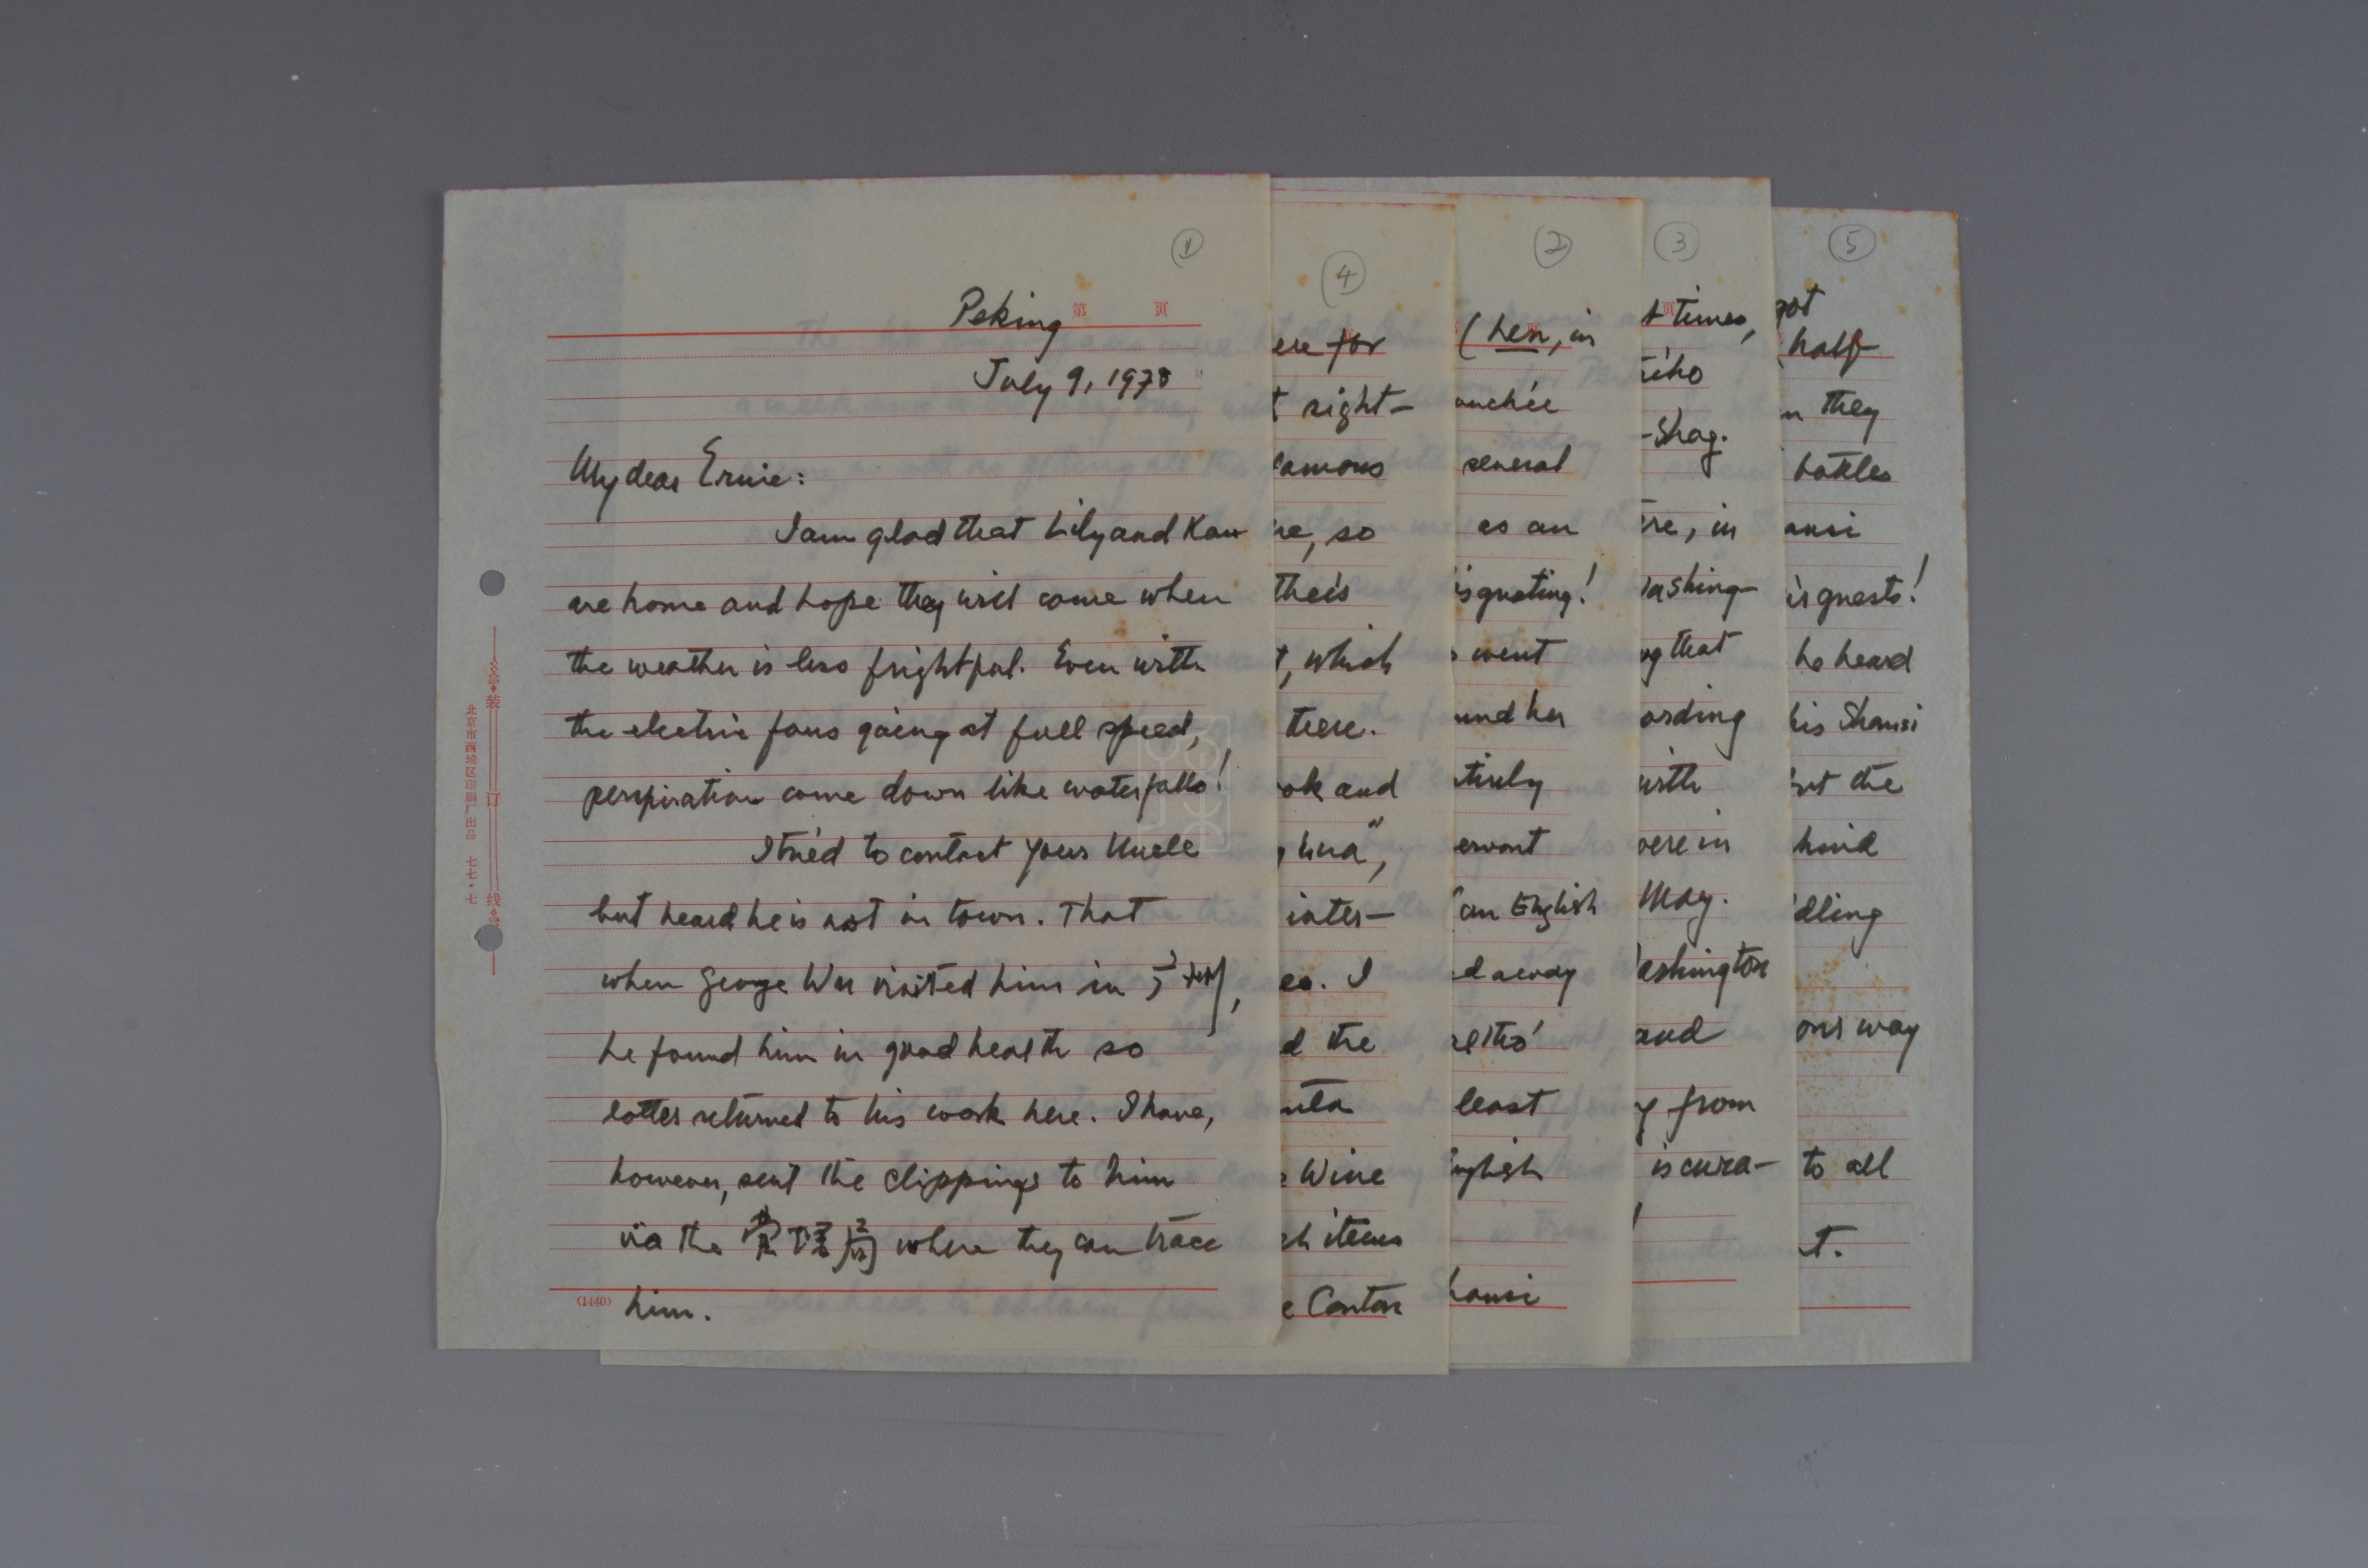 ①
第 页
Peking
July 9, 1978
My dear Ernie:
I am glad that Lily and Kau
are home and hope they will come when
the weather is less frightful. Even with
the electric fans going at full speed,
perspiration come down like waterfalls!
I tried to contact your Uncle
but heard he is not in town. That
when George Wu visited him in 苏州,
he found him in good health so
latter returned to his work here. I have,
however, sent the clippings to him
via the 管理局 where they can trace
him.
(1440)
装
订
线
北京市西城区印刷厂出品 七七·七
④
ere for
t right-
famous
ne, so
their
t, which
there.
ok and
hua",
inter-
es. I
d the
Wine
ch items
e Canton
②
(hen, in
ouchée
several
as an
isgusting!
went
und her
tirely
ervant
(an English
d away
altho'
least
nglish
hansi
③
页
t times,
eho
-Shag.
ere, in
ashing-
ng that
ording
with
were in
May.
ashington
and
y from
is cura-
⑤
got
half
n they
bottles
ansi
is guests!
he heard
his Shansi
but the
hind
dling
our way
to all
t.